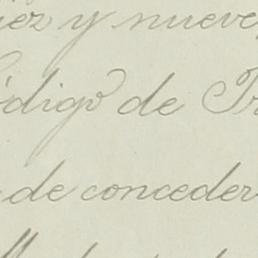 iez y nueve,
ódigo de Tr
de conceder